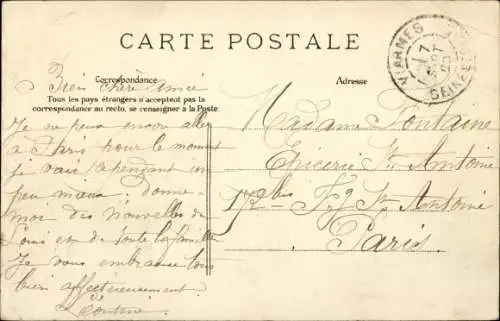 CARTE POSTALE
Correspondance
Tous les pays étrangers n'acceptent pas la
correspondance au recto, se renseigner à la Poste.
Adresse
VIARMES
17
SEINE
Bien chère amie
Je ne peux encore aller
à Paris pour le moment
je vais cependant un
peu mieux Donne-
moi des nouvelles de
Louis et de toute la famille
Je vous embrasse tous
bien affectueusement
Madame Fontaine
Epicerie St Antoine
172 bis Fg St Antoine
Paris